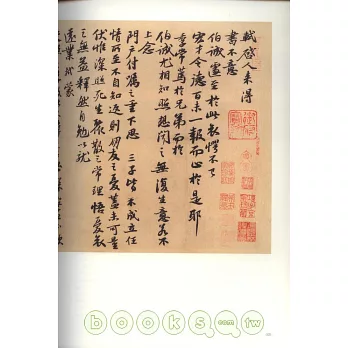 軾啓人來得
書不意
伯誠遽至於此哀愕不已
宏才令德百未一報而止於是耶
季常篤於兄弟而於
伯誠尤相知照想聞之無復生意若不
上念
門户付囑之重下思三子皆不成立任
情所至不自知返則朋友之憂蓋未可量
伏惟深照死生聚散之常理悟憂哀
之無益釋然自勉以就
遠業軾蒙
books.com.tw